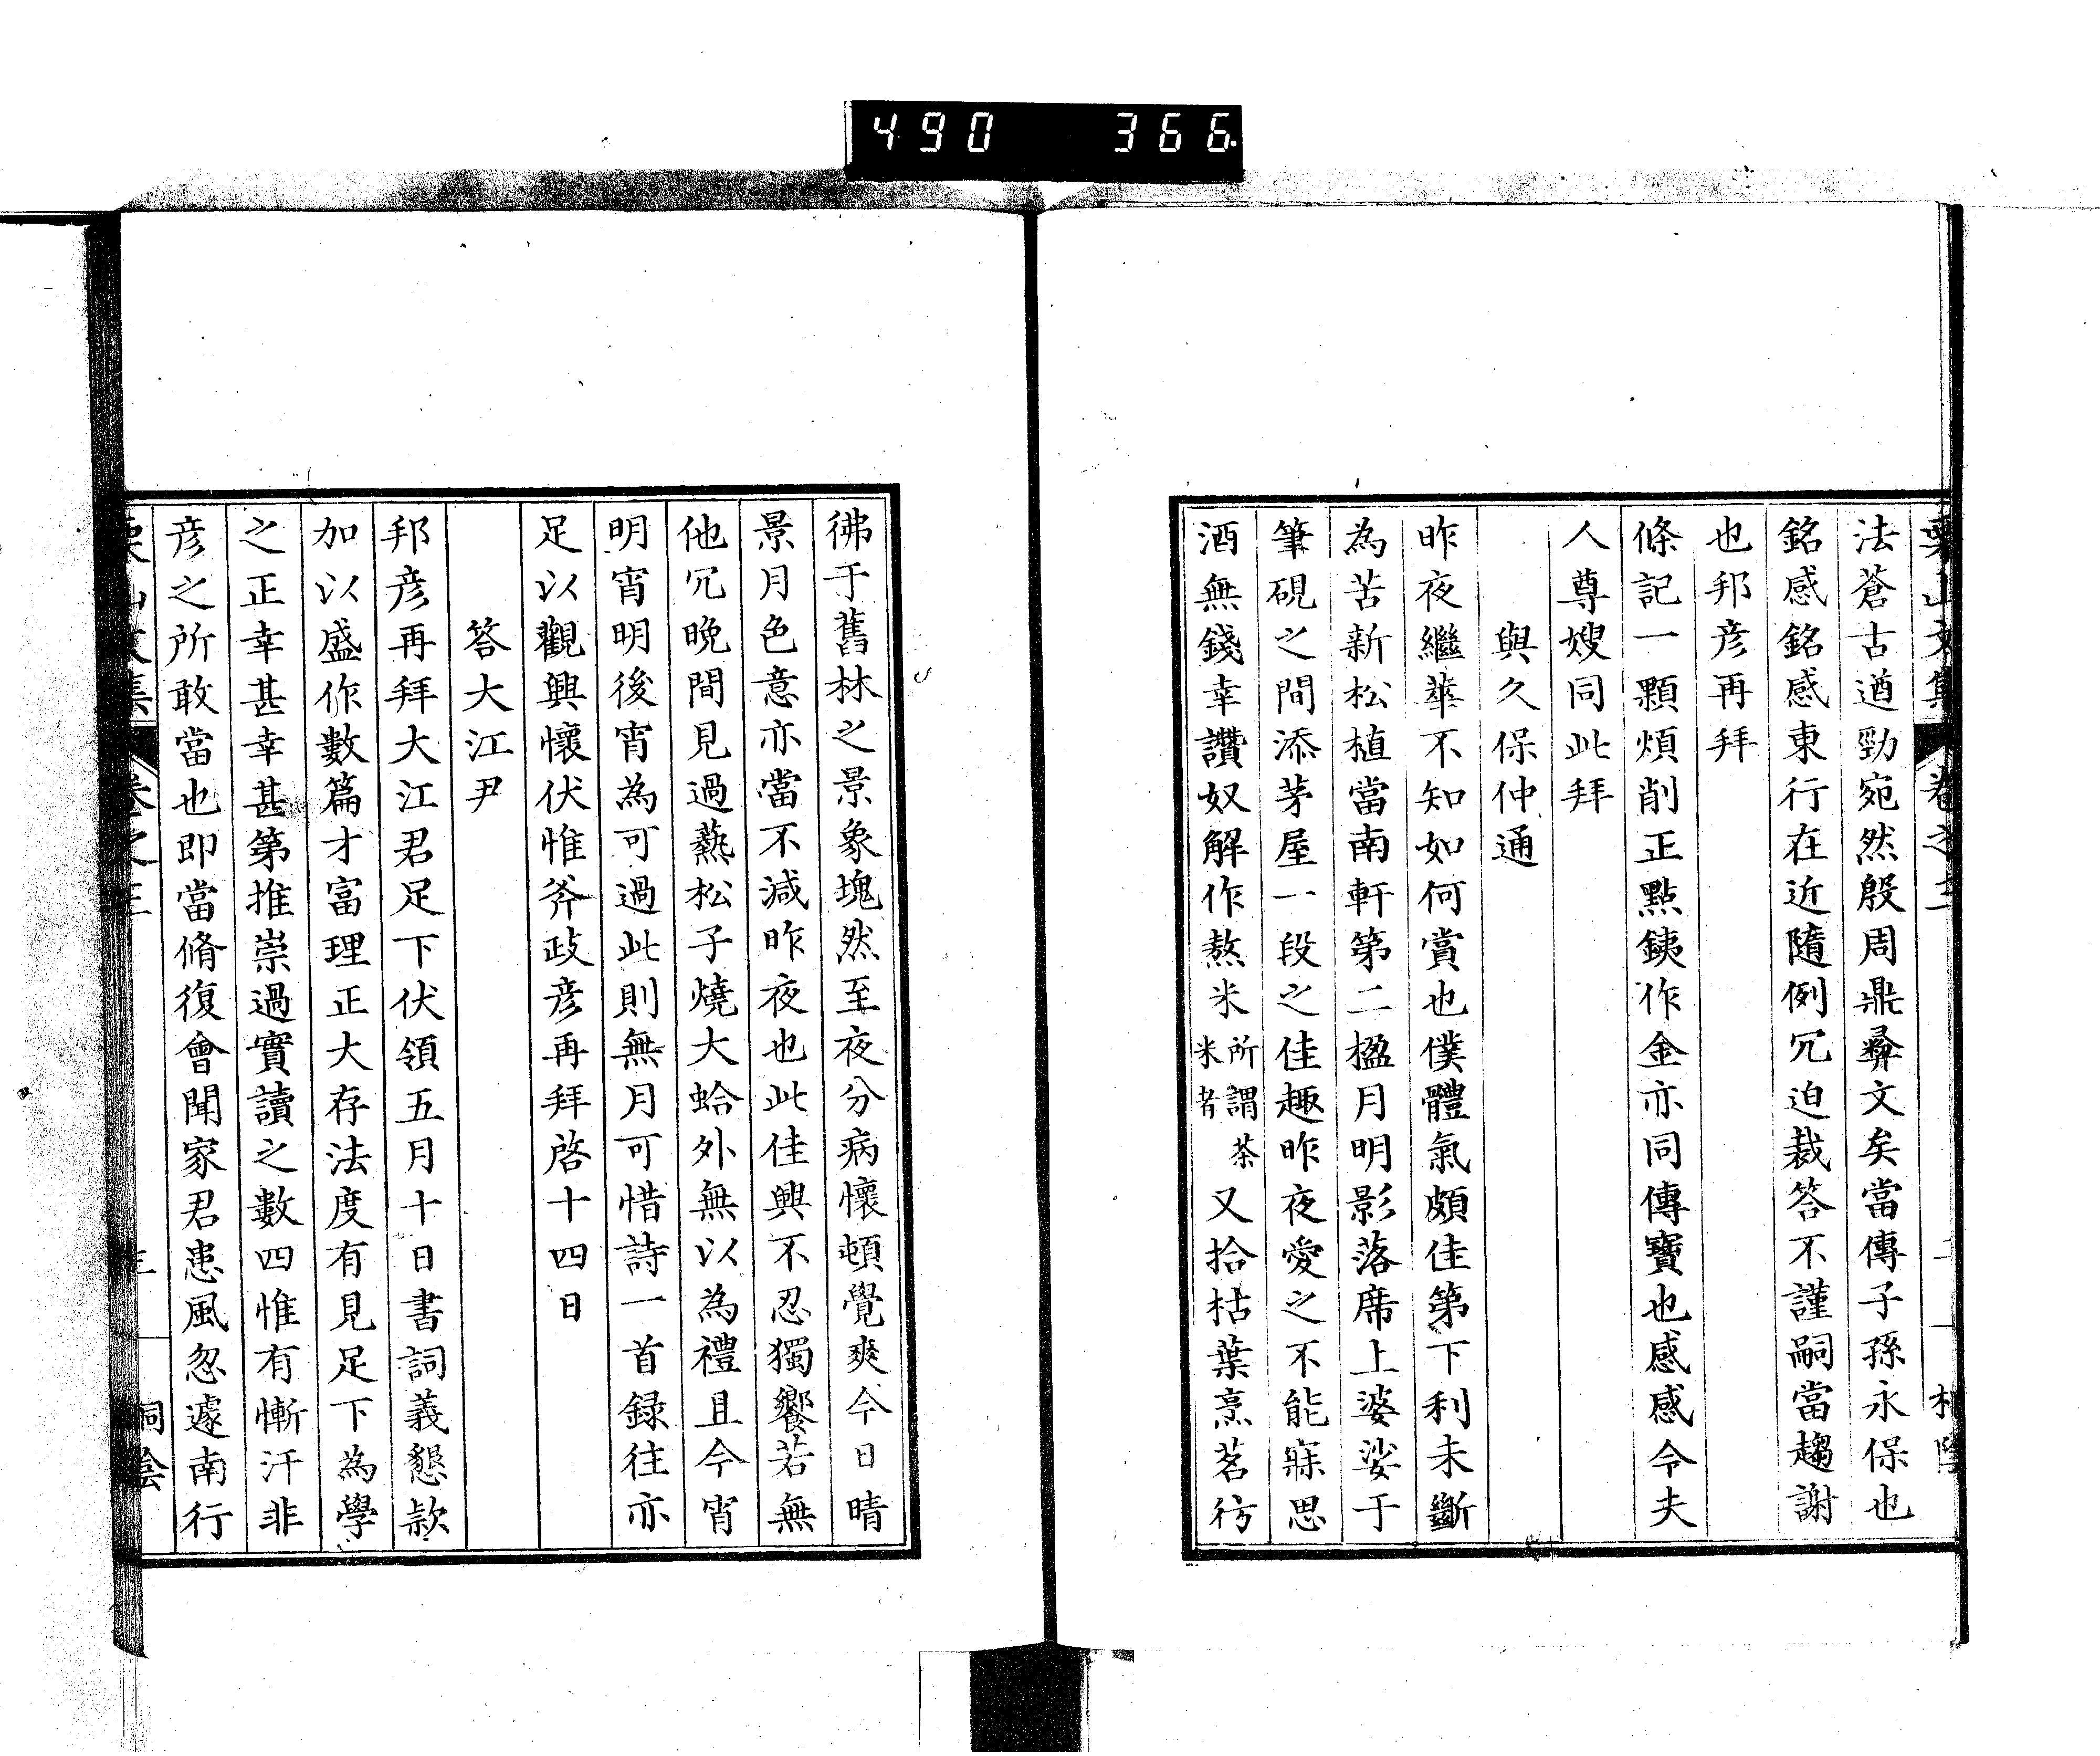 490 366
法蒼古遒勁宛然殷周鼎彝文矣當傳子孫永保也
銘感銘感東行在近隨例冗迫裁答不謹嗣當趨謝
也邦彦再拜
條記一顆煩削正點銕作金亦同傳寶也感感令夫
人尊嫂同此拜
與久保仲通
昨夜繼華不知如何賞也僕體氣頗佳第下利未斷
為苦新松植當南軒第二楹月明影落席上婆娑于
筆硯之間添茅屋一段之佳趣昨夜愛之不能寐思
酒無錢幸讚奴解作熬米所謂茶米者又拾枯葉烹茗彷
彿于舊林之景象塊然至夜分病懷頓覺爽今日晴
景月色意亦當不減昨夜也此佳興不忍獨饗若無
他冗晚間見過爇松子燒大蛤外無以為禮且今宵
明宵明後宵為可過此則無月可惜詩一首録往亦
足以觀興懷伏惟斧政彦再拜啓十四日
答大江尹
邦彦再拜大江君足下伏領五月十日書詞義懇款
加以盛作數篇才富理正大存法度有見足下為學
之正幸甚幸甚第推崇過實讀之數四惟有慚汗非
彦之所敢當也即當脩復會聞家君患風忽遽南行